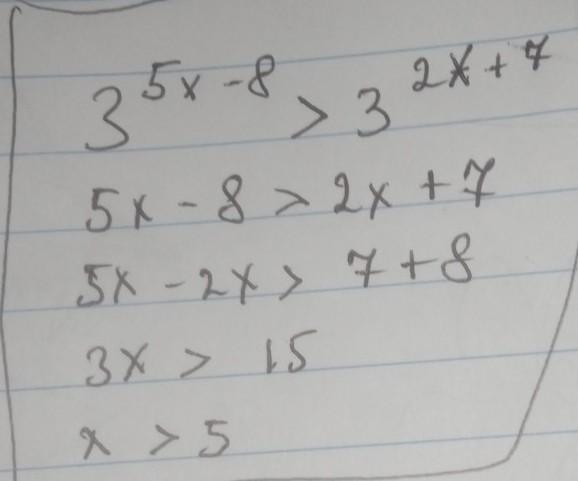 3^{5x-8} > 3^{2x+7}
5x - 8 > 2x + 7
5x - 2x > 7 + 8
3x > 15
x > 5